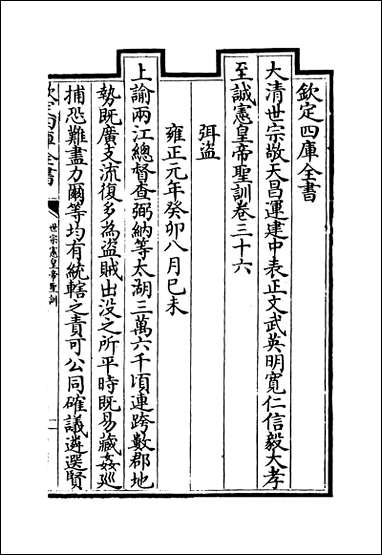 欽定四庫全書
大清世宗敬天昌運建中表正文武英明寬仁信毅大孝
至誠憲皇帝聖訓卷三十六
弭盜
雍正元年癸卯八月己未
上諭兩江總督查弼納等太湖三萬六千頃連跨數郡地
勢既廣支流復多為盜賊出没之所平時既易藏姦廵
捕恐難盡力爾等均有統轄之責可公同確議遴選賢
欽定四庫全書
世宗憲皇帝聖訓
一